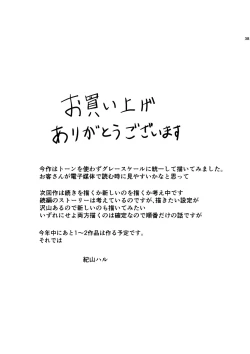 お買い上げ
ありがとうございます
今作はトーンを使わずグレースケールに統一して描いてみました。
お客さんが電子媒体で読む時に見やすいかなと思って
次回作は続きを描くか新しいのを描くか考え中です
続編のストーリーは考えているのですが、描きたい設定が
沢山あるので新しいのも描いてみたい
いずれにせよ両方描くのは確定なので順番だけの話ですが
今年中にあと1~2作品は作る予定です。
それでは
紀山ハル